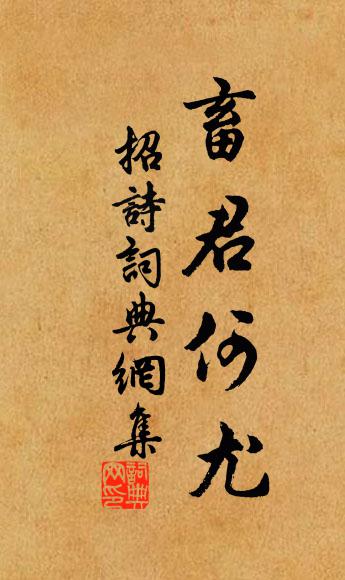 畜君何尤
招詩詞典網集
詞典网印